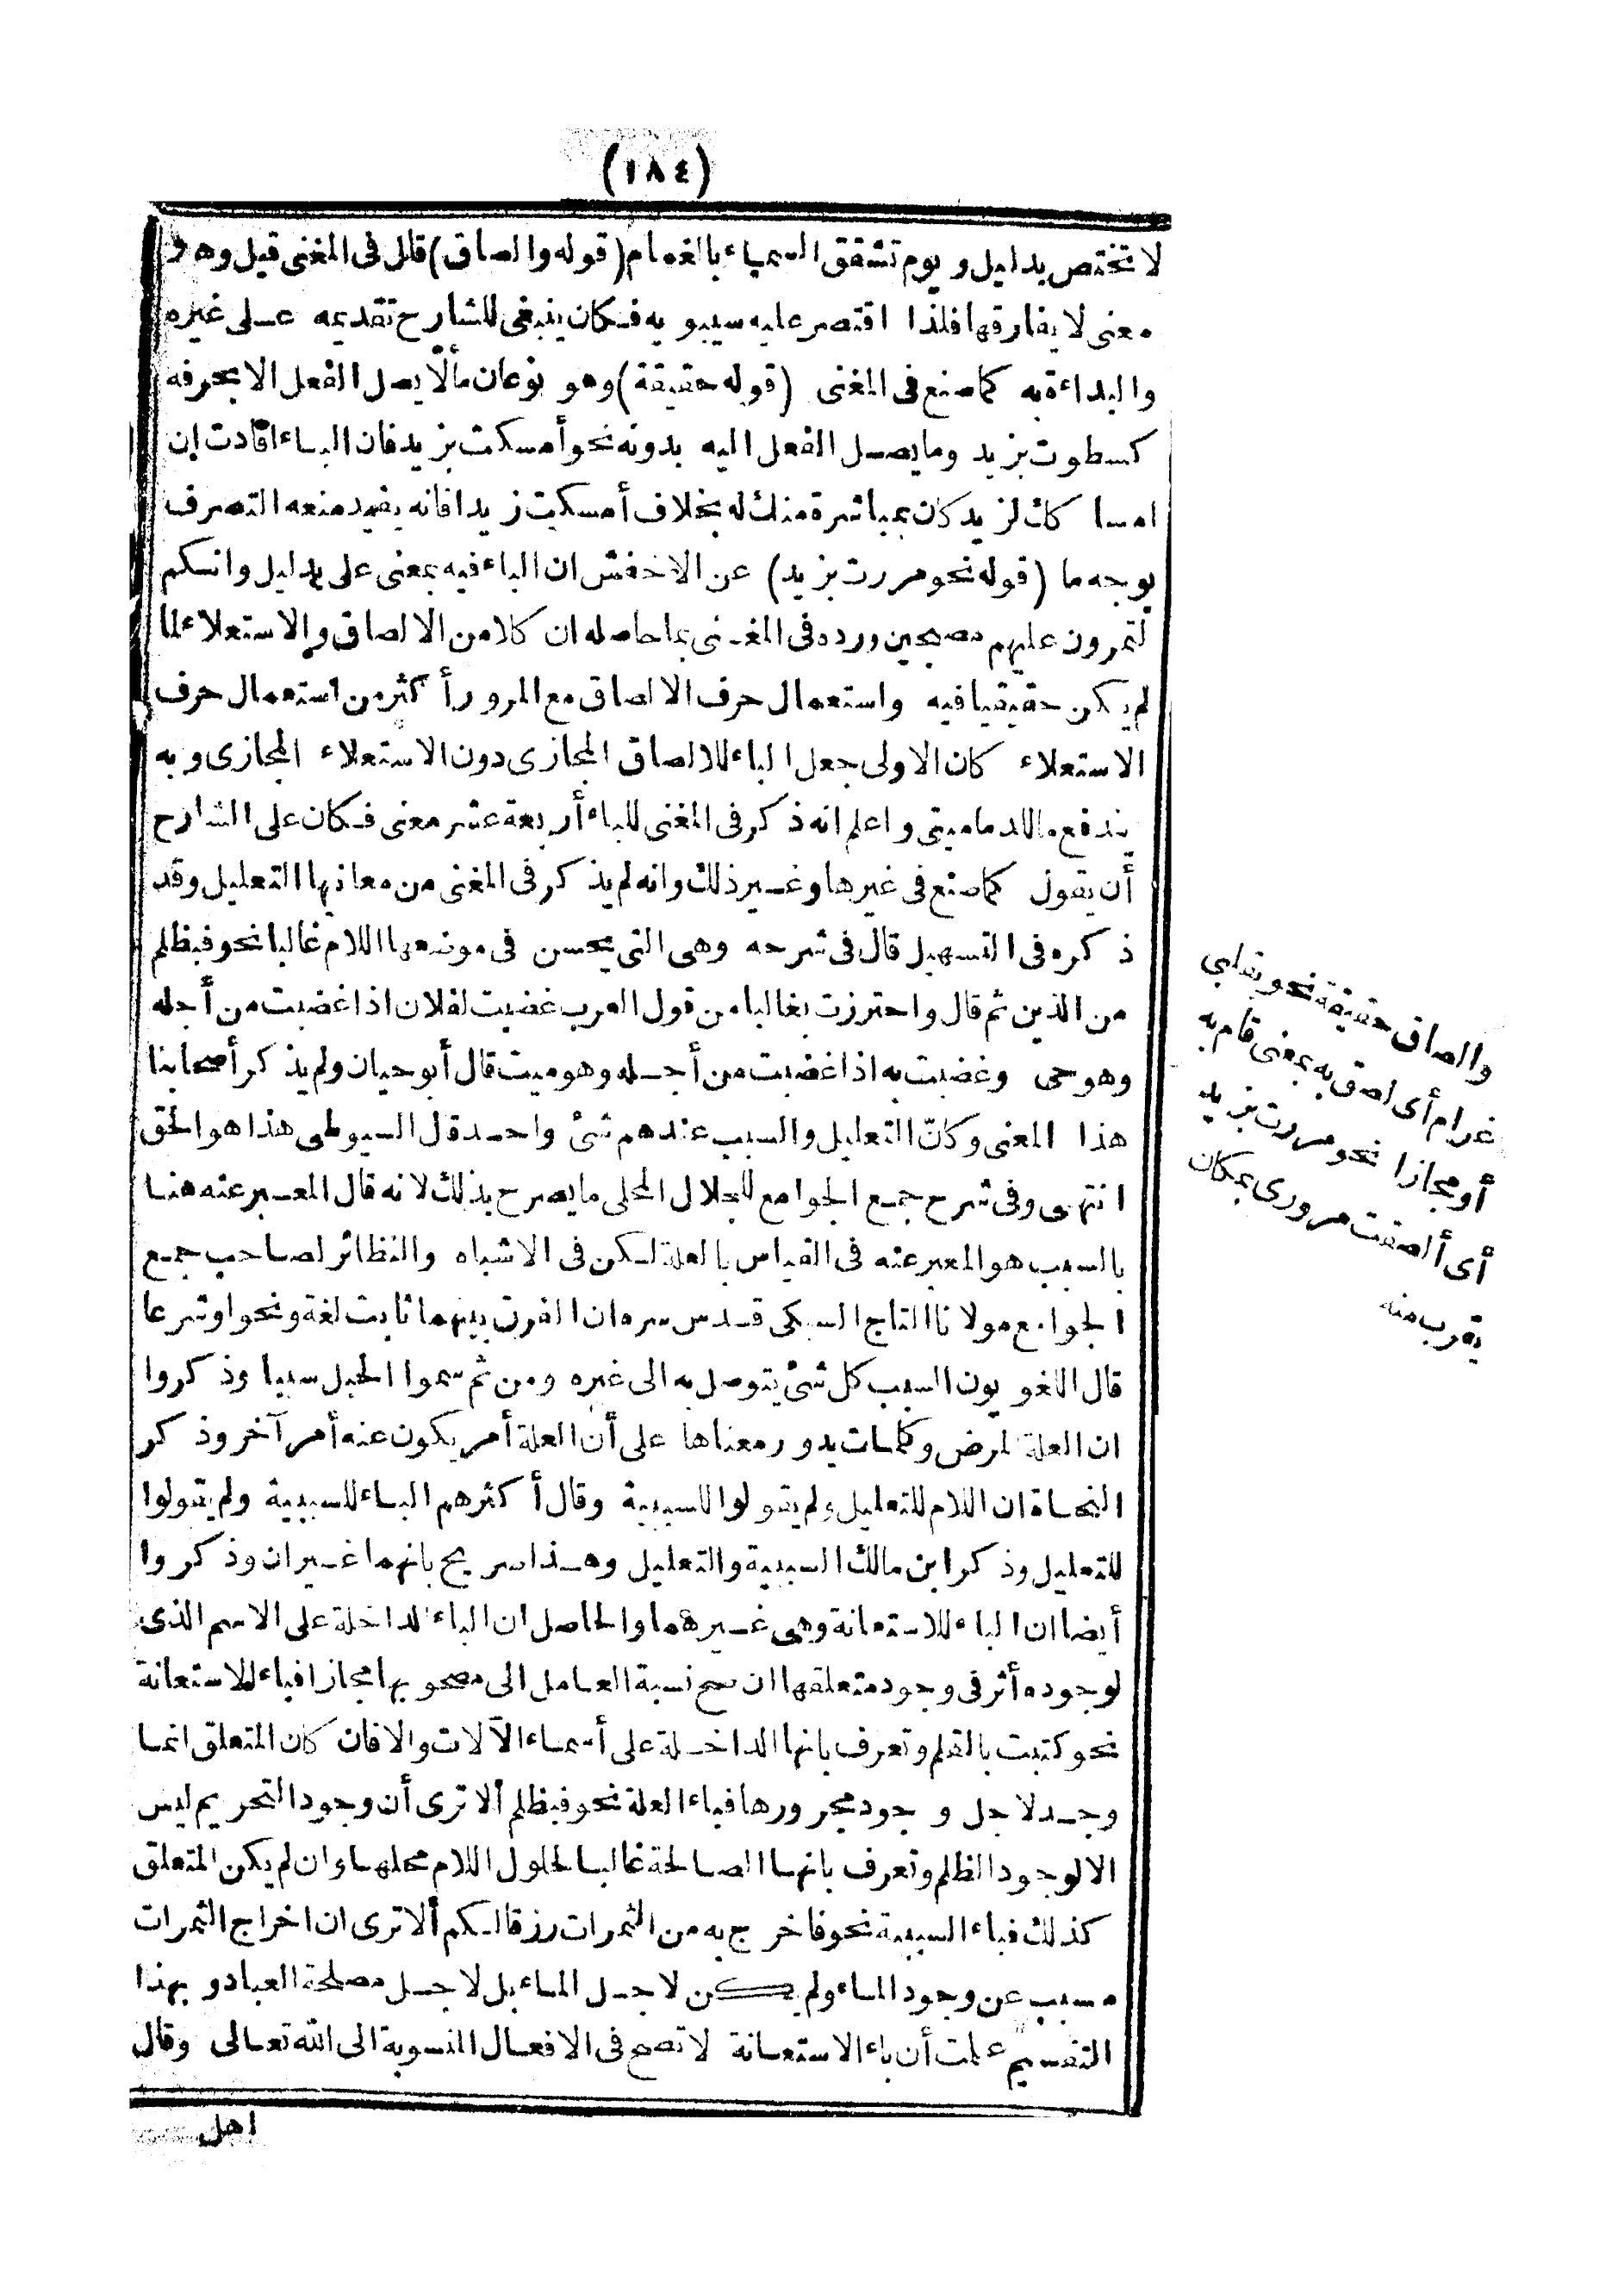 (١٨٤)
لا تختص بدليل ويوم تشقق السماء بالغمام (قوله والصاق) قال فى المغنى قيل وهو
معنى لا يفارقها فلذا اقتصر عليه سيبويه فكان ينبغى للشارح تقديمه على غيره
والبداءة به كما صنع فى المغنى (قوله حقيقة) وهو نوعان مالا يصل الفعل الا بحرفه
كسطوت بزيد وما يصل الفعل اليه بدونه نحو أمسكت بزيد فان الباء افادت إن
امساكك لزيد كان بمباشرة منك له بخلاف أمسكت زيدا فانه يفيد منعه التصرف
بوجه ما (قوله نحو مررت بزيد) عن الاخفش ان الباء فيه بمعنى على بدليل وانكم
لتمرون عليهم مصبحين ورده فى المغنى بما حاصله ان كلا من الالصاق والاستعلاء لما
لم يكن حقيقيا فيه واستعمال حرف الالصاق مع المرور أكثر من استعمال حرف
الاستعلاء كان الاولى جعل الباء للالصاق المجازى دون الاستعلاء المجازى وبه
يندفع ما للدمامينى واعلم انه ذكر فى المغنى للباء أربعة عشر معنى فكان على الشارح
أن يقول كما صنع فى غيرها وغير ذلك وانه لم يذكر فى المغنى من معانيها التعليل وقد
ذكره فى التسهيل قال فى شرحه وهى التى يحسن فى موضعها اللام غالبا نحو فبظلم
من الذين ثم قال واحترزت بغالبا من قول العرب غضبت لفلان اذا غضبت من أجله
وهو حى وغضبت به اذا غضبت من أجله وهو ميت قال أبو حيان ولم يذكر أصحابنا
هذا المعنى وكانّ التعليل والسبب عندهم شئ واحد قال السيوطى هذا هو الحق
انتهى وفى شرح جمع الجوامع للجلال المحلى ما يصرح بذلك لانه قال المعبر عنه هنا
بالسبب هو المعبر عنه فى القياس بالعلة لكن فى الاشباه والنظائر لصاحب جمع
الجوامع مولانا التاج السبكى قدس سره ان الفرق بينهما ثابت لغة ونحوا وشرعا
قال اللغويون السبب كل شئ يتوصل به الى غيره ومن ثم سموا الحبل سببا وذكروا
ان العلة المرض وكلمات يدور معناها على أن العلة أمر يكون عنه أمر آخر وذكر
النحاة ان اللام للتعليل ولم يقولوا للسببية وقال أكثرهم الباء للسببية ولم يقولوا
للتعليل وذكر ابن مالك السببية والتعليل وهذا صريح بانهما غيران وذكروا
أيضا ان الباء للاستعانة وهى غيرهما والحاصل ان الباء الداخلة على الاسم الذى
لوجوده أثر فى وجود متعلقها ان صح نسبة العامل الى مصحوبها مجازا فباء للاستعانة
نحو كتبت بالقلم وتعرف بانها الداخلة على أسماء الآلات والا فان كان المتعلق انما
وجد لاجل وجود مجرورها فباء العلة نحو فبظلم ألا ترى أن وجود التحريم ليس
الا لوجود الظلم وتعرف بانها الصالحة غالبا لحلول اللام محلها وان لم يكن المتعلق
كذلك فباء السببية نحو فاخرج به من الثمرات رزقا لكم ألا ترى ان اخراج الثمرات
مسبب عن وجود الماء ولم يكن لاجل الماء بل لاجل مصلحة العباد وبهذا
التقسيم علمت أن باء الاستعانة لا تصح فى الافعال المنسوبة الى الله تعالى وقال
اهل
والصاق حقيقة نحو بقلبى
غرام أى لصق به بمعنى قام به
أو مجازا نحو مررت بزيد
أى ألصقت مرورى بمكان
يقرب منه